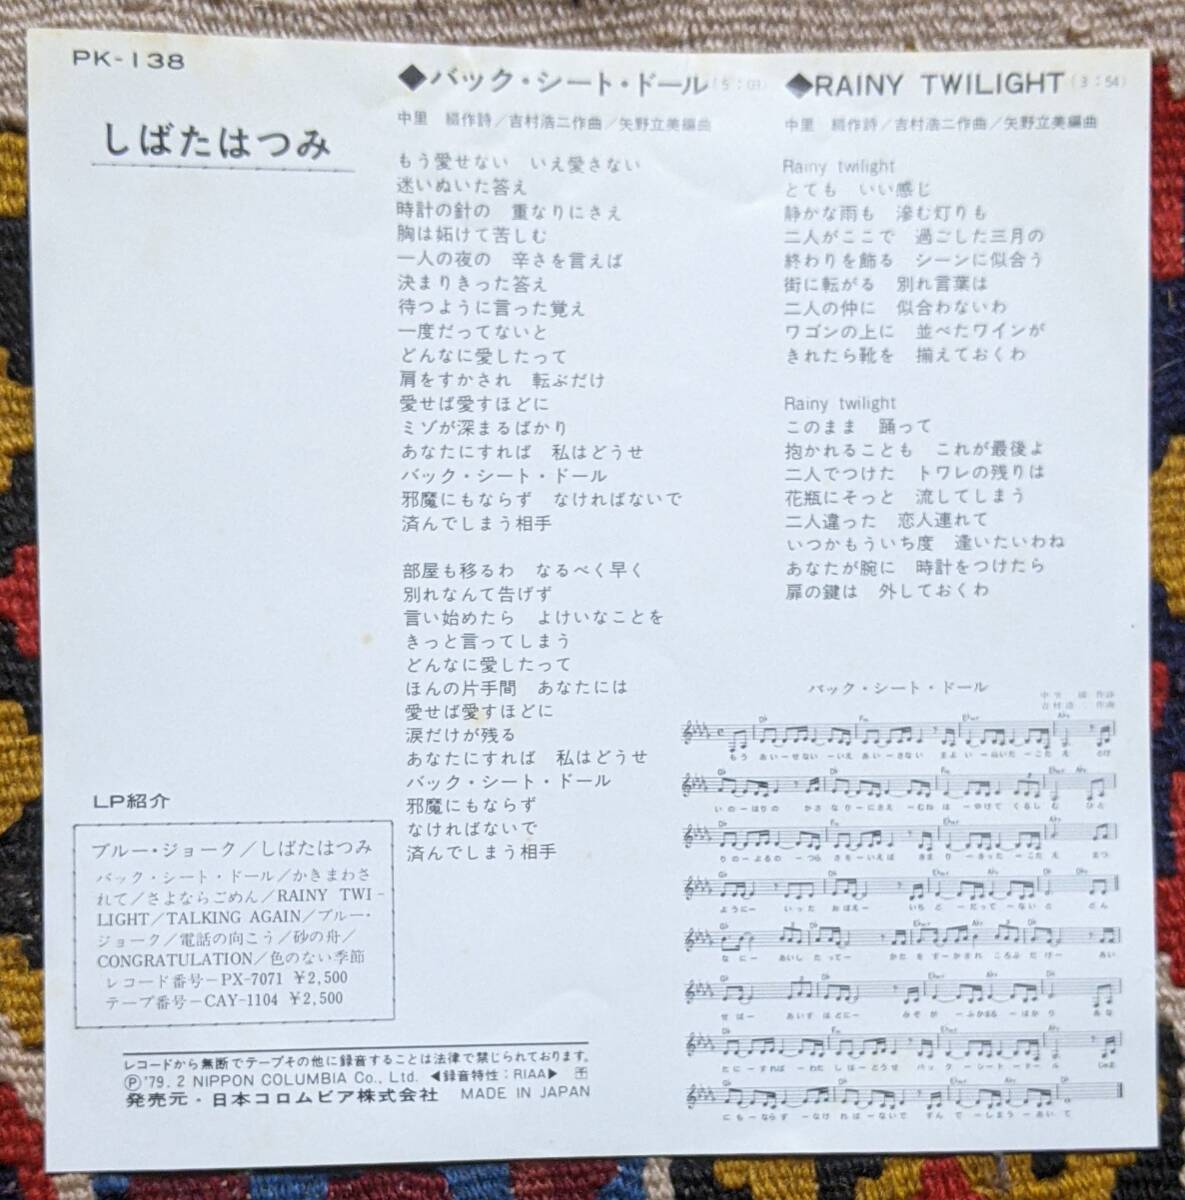 PK-138
しばたはつみ
◆バック・シート・ドール(5:03)
中里 綴作詩/吉村浩二作曲/矢野立美編曲
もう愛せない いえ愛さない
迷いぬいた答え
時計の針の 重なりにさえ
胸は妬けて苦しむ
一人の夜の 辛さを言えば
決まりきった答え
待つように言った覚え
一度だってないと
どんなに愛したって
肩をすかされ 転ぶだけ
愛せば愛すほどに
ミゾが深まるばかり
あなたにすれば 私はどうせ
バック・シート・ドール
邪魔にもならず なければないで
済んでしまう相手
部屋も移るわ なるべく早く
別れなんて告げず
言い始めたら よけいなことを
きっと言ってしまう
どんなに愛したって
ほんの片手間 あなたには
愛せば愛すほどに
涙だけが残る
あなたにすれば 私はどうせ
バック・シート・ドール
邪魔にもならず
なければないで
済んでしまう相手
◆RAINY TWILIGHT(3:54)
中里 綴作詩/吉村浩二作曲/矢野立美編曲
Rainy twilight
とても いい感じ
静かな雨も 滲む灯りも
二人がここで 過ごした三月の
終わりを飾る シーンに似合う
街に転がる 別れ言葉は
二人の仲に 似合わないわ
ワゴンの上に 並べたワインが
きれたら靴を 揃えておくわ
Rainy twilight
このまま 踊って
抱かれることも これが最後よ
二人でつけた トワレの残りは
花瓶にそっと 流してしまう
二人違った 恋人連れて
いつかもういち度 逢いたいわね
あなたが腕に 時計をつけたら
扉の鍵は 外しておくわ
バック・シート・ドール
中里 綴 作詩
吉村浩二 作曲
もう あい－せない－いえ あい－さない まよい－ぬいた－こたえ とけ
いの－はりの かさなり－にさえ－むねは－やけて くるしむ ひと
りの－よるの－つら さを－いえば きまり－きった－こたえ まつ
ように－いった おぼえ－ いちど－だって－ないと どん
なに－あいし たって－ かたをす－かされ ころぶだけ－ あい
せば－あいす ほどに－ みぞが－ふかまる－ばかり あな
たに－すれば－わたしは－どうせ バック－シート－ドール じゃま
にも－ならず－なければ－ないで すんで－しまう－あいて
LP紹介
ブルー・ジョーク/しばたはつみ
バック・シート・ドール/かきまわさ
れて/さよならごめん/RAINY TWI-
LIGHT/TALKING AGAIN/ブルー・
ジョーク/電話の向こう/砂の舟/
CONGRATULATION/色のない季節
レコード番号－PX-7071 ¥2,500
テープ番号－CAY-1104 ¥2,500
レコードから無断でテープその他に録音することは法律で禁じられております。
Ⓟ'79.2 NIPPON COLUMBIA Co., Ltd. ◀録音特性:RIAA▶
発売元・日本コロムビア株式会社 MADE IN JAPAN